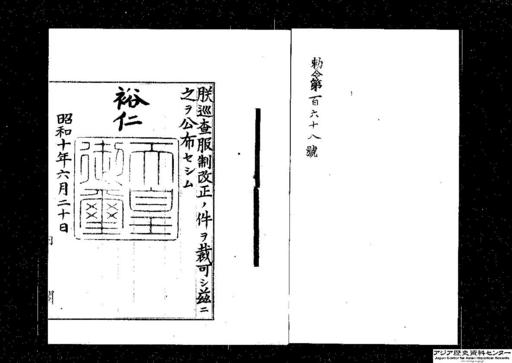 勅令第一百六十八號
朕巡査服制改正ノ件ヲ裁可シ茲ニ
之ヲ公布セシム
裕仁
天皇御璽
昭和十年六月二十日
アジア歴史資料センター
Japan Center for Asian Historical Records